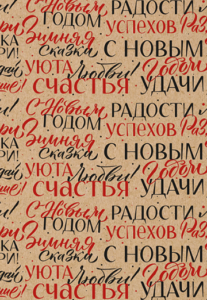 С Новым РАДОСТИ
ГОДОМ УСПЕХОВ
Зимняя
СКАЗКА С НОВЫМ
УЮТА Любви! Годом
СЧАСТЬЯ УДАЧИ
С Новым РАДОСТИ
ГОДОМ УСПЕХОВ
Зимняя
СКАЗКА С НОВЫМ
УЮТА Любви! Годом
СЧАСТЬЯ УДАЧИ
С Новым РАДОСТИ
ГОДОМ УСПЕХОВ
Зимняя
СКАЗКА С НОВЫМ
УЮТА Любви! Годом
СЧАСТЬЯ УДАЧИ